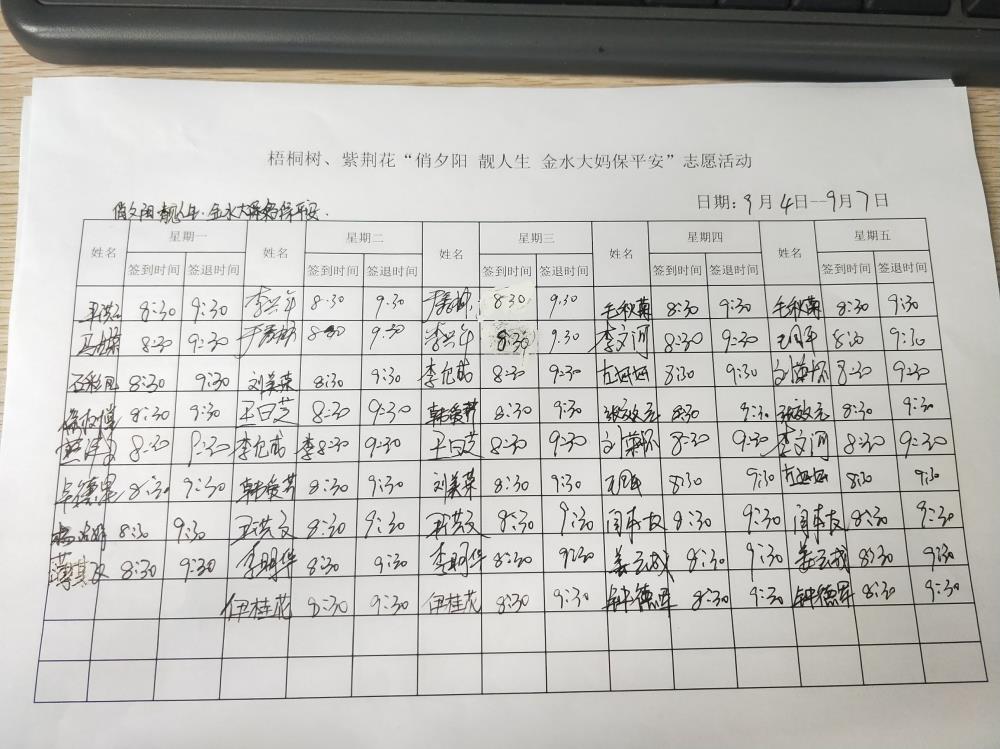 梧桐树、紫荆花“俏夕阳 靓人生 金水大妈保平安”志愿活动
俏夕阳 靓人生 金水大妈保平安.
日期: 9月4日--9月7日
姓名 星期一 姓名 星期二 姓名 星期三 姓名 星期四 姓名 星期五
签到时间 签退时间 签到时间 签退时间 签到时间 签退时间 签到时间 签退时间 签到时间 签退时间
8:30 9:30 李兴年 8:30 9:30 8:30 9:30 毛秋菊 8:30 9:30 毛秋菊 8:30 9:30
8:30 9:30 8:30 9:30 李兴年 8:30 9:30 李文河 8:30 9:30 8:30 9:30
8:30 9:30 刘美荣 8:30 9:30 李允成 8:30 9:30 8:30 9:30 8:30 9:30
8:30 9:30 王日芝 8:30 9:30 韩爱芳 8:30 9:30 张效元 8:30 9:30 张效元 8:30 9:30
8:30 9:30 李允成 李8:30 9:30 王日芝 8:30 9:30 8:30 9:30 李文河 8:30 9:30
8:30 9:30 韩爱芳 8:30 9:30 刘美荣 8:30 9:30 8:30 9:30 8:30 9:30
8:30 9:30 王洪文 8:30 9:30 王洪文 8:30 9:30 8:30 9:30 8:30 9:30
8:30 9:30 李明华 8:30 9:30 李明华 8:30 9:30 姜云成 8:30 9:30 姜云成 8:30 9:30
伊桂花 8:30 9:30 伊桂花 8:30 9:30 钟德军 8:30 9:30 钟德军 8:30 9:30